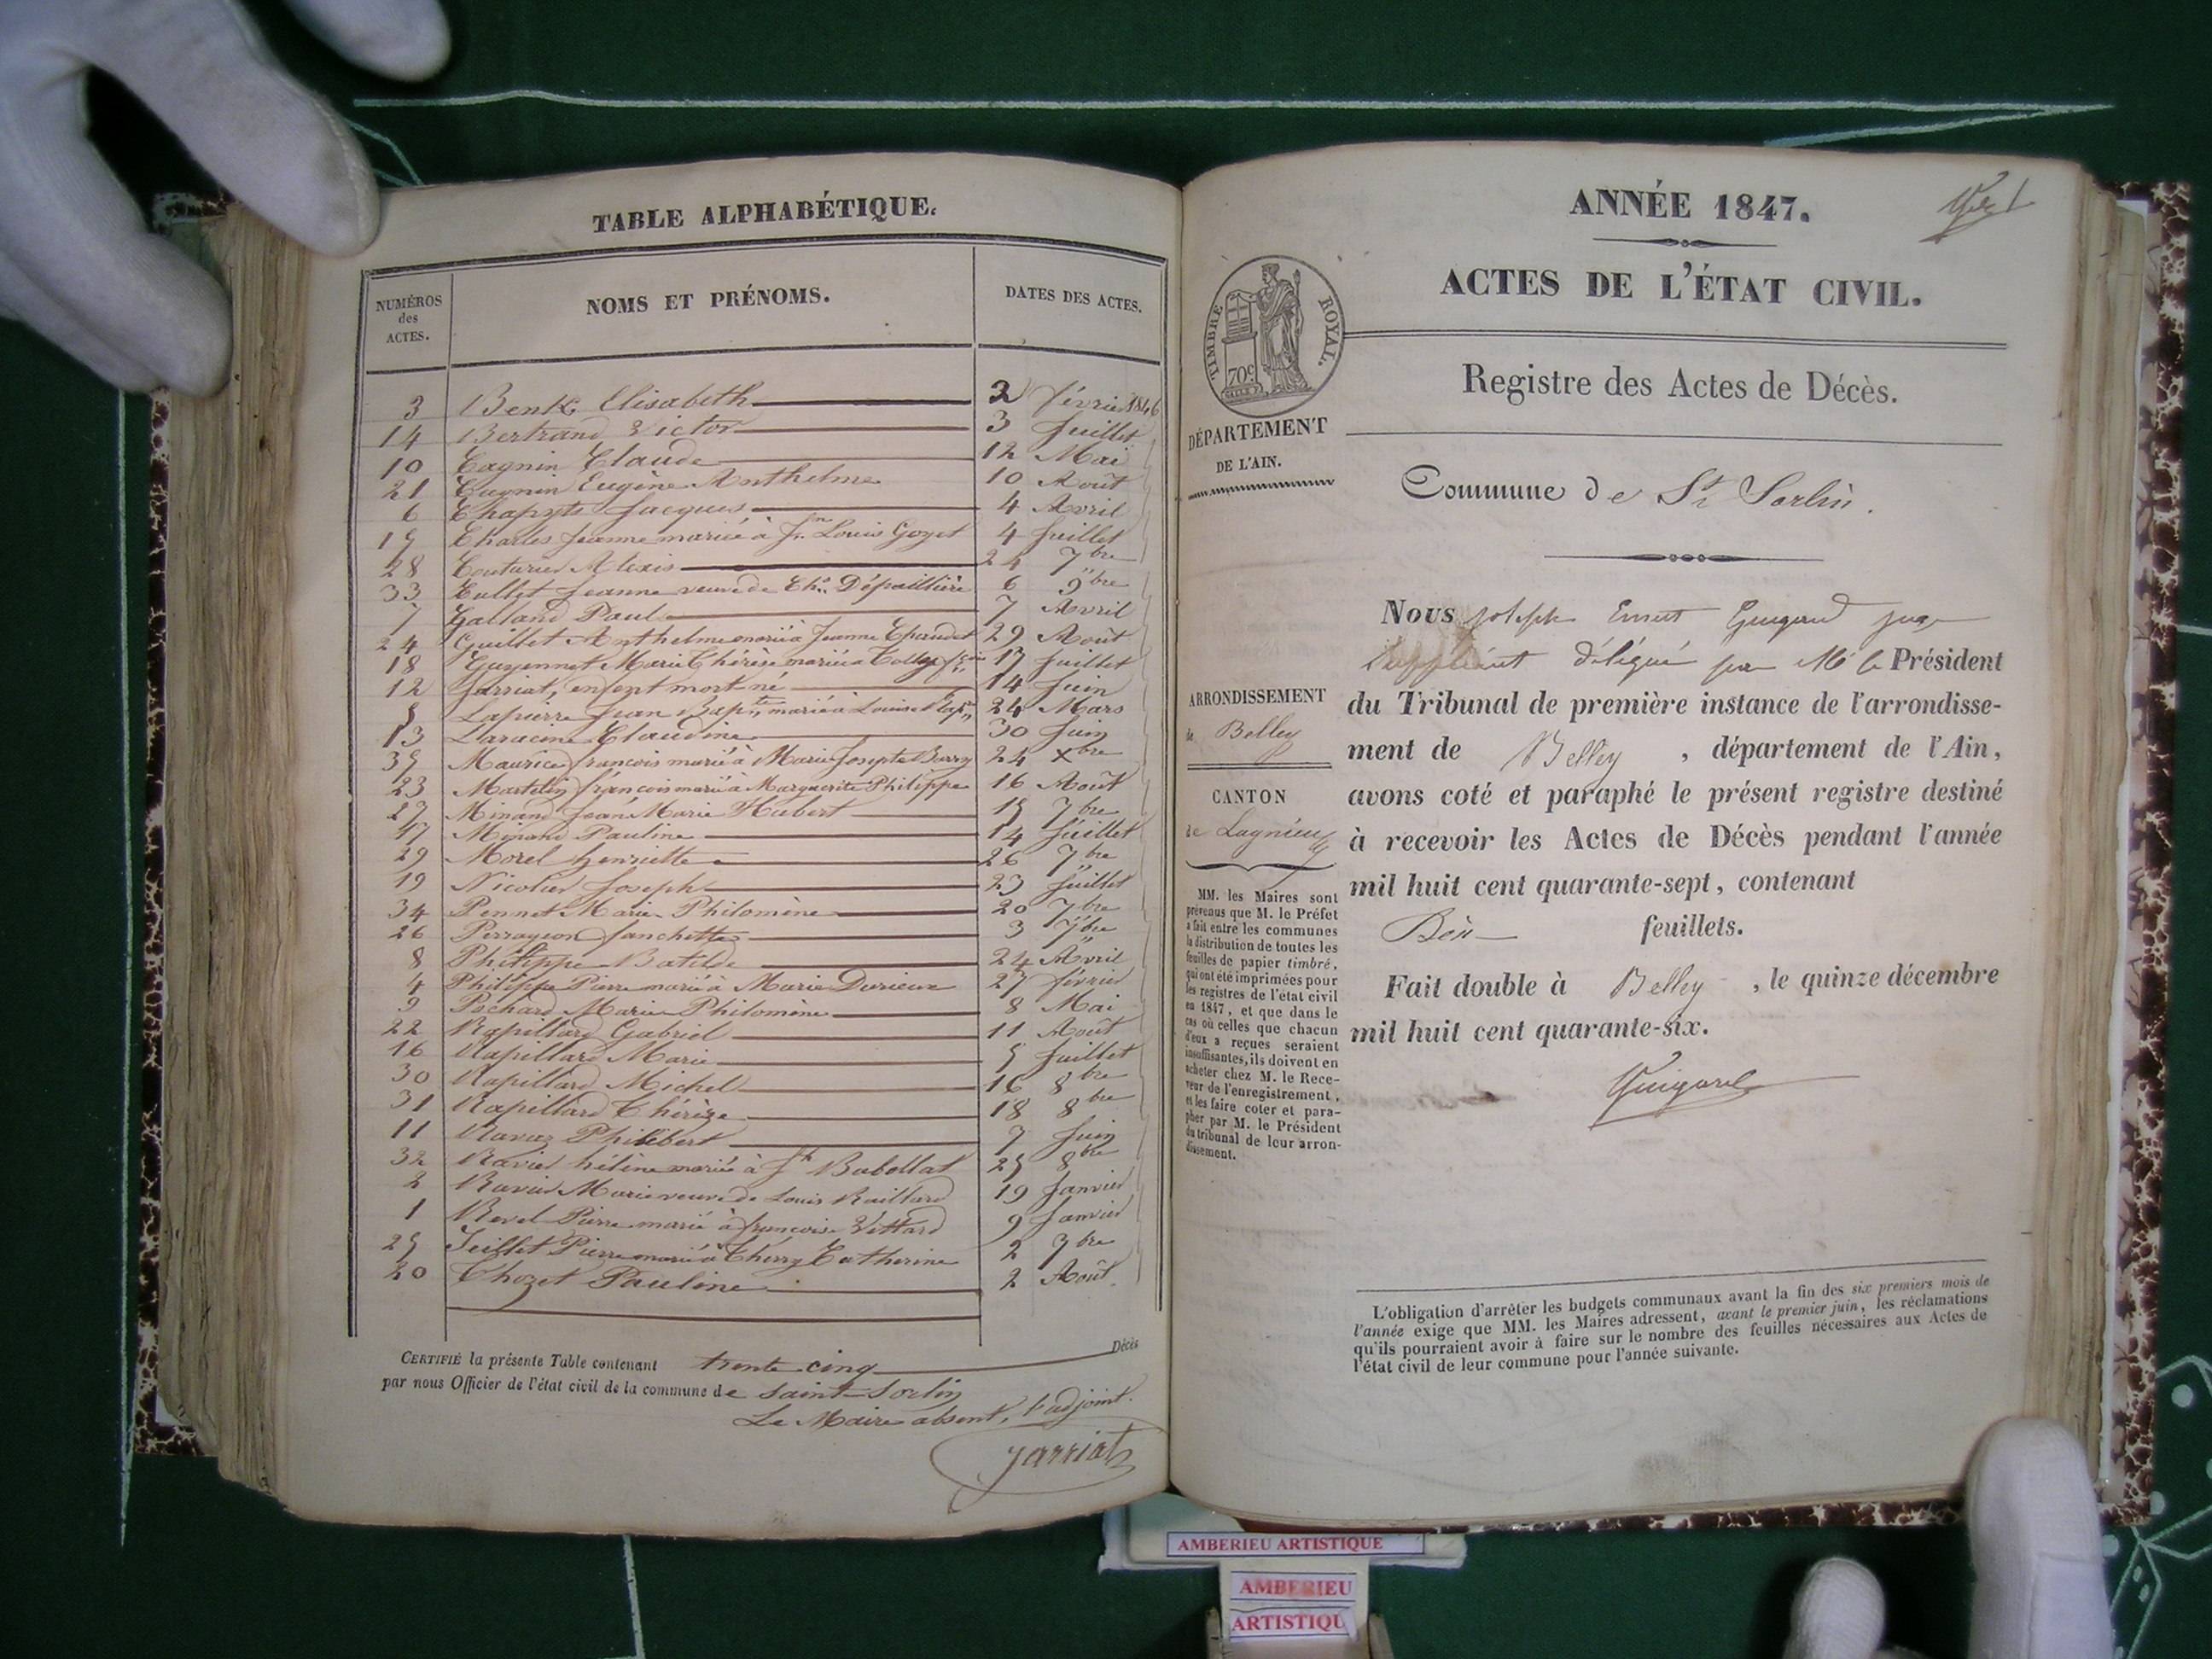 TABLE ALPHABÉTIQUE.
NUMÉROS des ACTES. NOMS ET PRÉNOMS. DATES DES ACTES.
3 Elisabeth 2 février 1846
14 Bertrand Victor 3 Juillet
10 Cagnin Claude 12 Mai
21 Cagnin Eugène Anthelme 10 Août
6 Jacques 4 Avril
15 Charles Jeanne mariée à Jn Louis Goyet 4 Juillet
28 Couturier Alexis 24 7bre
33 Cullet Jeanne veuve de 6 9bre
7 Galland Paul 7 Avril
24 Guillet Anthelme marié à Jeanne 29 Août
18 Guyennet Marie Thérèse mariée à 17 Juillet
12 Jarriat, enfant mort-né 14 Juin
5 Lapierre Jean Bapte marié à Louise 24 Mars
13 Laracine Claudine 30 Juin
35 Maurice françois marié à Marie Josepte 24 Xbre
23 Martelin françois marié à Marguerite Philippe 16 Août
27 Minand Jean Marie Hubert 15 7bre
17 Minand Pauline 14 Juillet
29 Morel henriette 26 7bre
19 Nicolier Joseph 23 Juillet
34 Pennet Marie Philomène 20
26 Perrageon fanchette 3 7bre
8 Philippe Batilde 24 Avril
4 Philippe Pierre marié à Marie Durieux 27 février
9 Pochard Marie Philomène 8 Mai
22 Rapillard Gabriel 11 Août
16 Rapillard Marie 5 Juillet
30 Rapillard Michel 16 8bre
31 Rapillard Thérèze 18 8bre
11 Ravaz Philibert 7 Juin
32 Ravier hélène mariée à Jh Babollat 25 8bre
2 Ravier Marie veuve de Louis Raillard 19 Janvier
1 Revel Pierre marié à françoise Vettard 9 Janvier
25 Seillet Pierre marié à Cherry Catherine 2 7bre
20 Chozet Pauline 2 Août.
CERTIFIÉ la présente Table contenant trente cinq Décès
par nous Officier de l'état civil de la commune de saint-Sorlin
Le Maire absent, l'adjoint.
Jarriat
ANNÉE 1847.
ACTES DE L'ÉTAT CIVIL.
TIMBRE ROYAL.
70c
Registre des Actes de Décès.
DÉPARTEMENT
DE L'AIN.
Commune de St Sorlin.
ARRONDISSEMENT
de Belley
CANTON
de Lagnieu
MM. les Maires sont
prévenus que M. le Préfet
a fait entre les communes
la distribution de toutes les
feuilles de papier timbré,
qui ont été imprimées pour
les registres de l'état civil
en 1847, et que dans le
cas où celles que chacun
d'eux a reçues seraient
insuffisantes, ils doivent en
acheter chez M. le Rece-
veur de l'enregistrement,
et les faire coter et para-
pher par M. le Président
du tribunal de leur arron-
dissement.
Nous Joseph Ernest Guigard juge
suppléant délégué par Mr le Président
du Tribunal de première instance de l'arrondisse-
ment de Belley, département de l'Ain,
avons coté et paraphé le présent registre destiné
à recevoir les Actes de Décès pendant l'année
mil huit cent quarante-sept, contenant
feuillets.
Fait double à Belley, le quinze décembre
mil huit cent quarante-six.
Guigard
L'obligation d'arrêter les budgets communaux avant la fin des six premiers mois de
l'année exige que MM. les Maires adressent, avant le premier juin, les réclamations
qu'ils pourraient avoir à faire sur le nombre des feuilles nécessaires aux Actes de
l'état civil de leur commune pour l'année suivante.
AMBERIEU ARTISTIQUE
AMBERIEU
ARTISTIQU